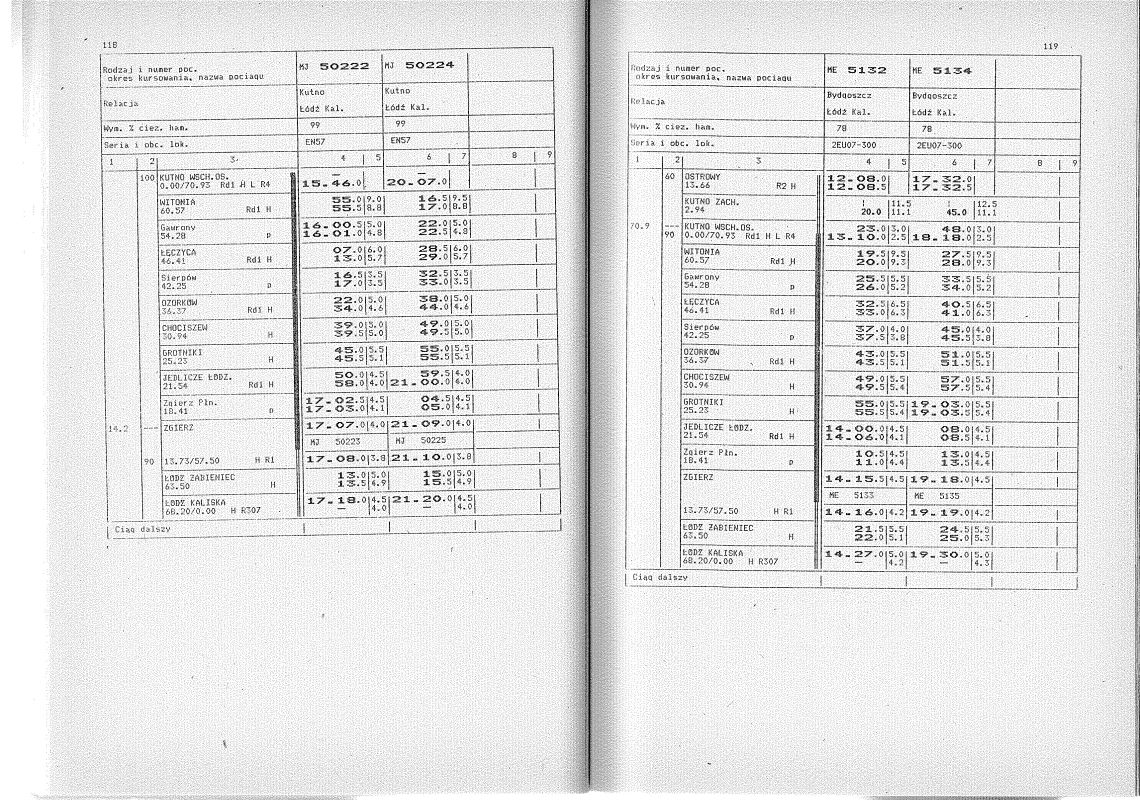 118
Rodzaj i numer poc. MJ 50222 MJ 50224
okres kursowania, nazwa pociągu
Relacja Kutno Kutno
Łódź Kal. Łódź Kal.
Wym. % cież. ham. 99 99
Seria i obc. lok. EN57 EN57
1 2 3 4 5 6 7 8 9
100 KUTNO WSCH.OS. — —
0.00/70.93 Rd1 H L R4 15-46.0 20-07.0
WITONIA 55.0 9.0 16.5 9.5
60.57 Rd1 H 55.5 8.8 17.0 8.8
Gawrony 16-00.5 5.0 22.0 5.0
54.28 p 16-01.0 4.8 22.5 4.8
ŁĘCZYCA 07.0 6.0 28.5 6.0
46.41 Rd1 H 13.0 5.7 29.0 5.7
Sierpów 16.5 3.5 32.5 3.5
42.25 p 17.0 3.5 33.0 3.5
OZORKÓW 22.0 5.0 38.0 5.0
36.37 Rd1 H 34.0 4.6 44.0 4.6
CHOCISZEW 39.0 5.0 49.0 5.0
30.94 H 39.5 5.0 49.5 5.0
GROTNIKI 45.0 5.5 55.0 5.5
25.23 H 45.5 5.1 55.5 5.1
JEDLICZE ŁÓDZ. 50.0 4.5 59.5 4.0
21.54 Rd1 H 58.0 4.0 21-00.0 4.0
Zgierz Płn. 17-02.5 4.5 04.5 4.5
18.41 p 17-03.0 4.1 05.0 4.1
14.2 --- ZGIERZ 17-07.0 4.0 21-09.0 4.0
MJ 50223 MJ 50225
90 13.73/57.50 H R1 17-08.0 3.8 21-10.0 3.8
ŁÓDŹ ŻABIENIEC 13.0 5.0 15.0 5.0
63.50 H 13.5 4.9 15.5 4.9
ŁÓDŹ KALISKA 17-18.0 4.5 21-20.0 4.5
68.20/0.00 H R307 — 4.0 — 4.0
Ciąg dalszy
119
Rodzaj i numer poc. ME 5132 ME 5134
okres kursowania, nazwa pociągu
Relacja Bydgoszcz Bydgoszcz
Łódź Kal. Łódź Kal.
Wym. % cież. ham. 78 78
Seria i obc. lok. 2EU07-300 2EU07-300
1 2 3 4 5 6 7 8 9
60 OSTROWY 12-08.0 17-32.0
13.66 R2 H 12-08.5 17-32.5
KUTNO ZACH. | 11.5 | 12.5
2.94 20.0 11.1 45.0 11.1
70.9 --- KUTNO WSCH.OS. 23.0 3.0 48.0 3.0
90 0.00/70.93 Rd1 H L R4 13-10.0 2.5 18-18.0 2.5
WITONIA 19.5 9.5 27.5 9.5
60.57 Rd1 H 20.0 9.3 28.0 9.3
Gawrony 25.5 5.5 33.5 5.5
54.28 p 26.0 5.2 34.0 5.2
ŁĘCZYCA 32.5 6.5 40.5 6.5
46.41 Rd1 H 33.0 6.3 41.0 6.3
Sierpów 37.0 4.0 45.0 4.0
42.25 p 37.5 3.8 45.5 3.8
OZORKÓW 43.0 5.5 51.0 5.5
36.37 Rd1 H 43.5 5.1 51.5 5.1
CHOCISZEW 49.0 5.5 57.0 5.5
30.94 H 49.5 5.4 57.5 5.4
GROTNIKI 55.0 5.5 19-03.0 5.5
25.23 H 55.5 5.4 19-03.5 5.4
JEDLICZE ŁÓDZ. 14-00.0 4.5 08.0 4.5
21.54 Rd1 H 14-06.0 4.1 08.5 4.1
Zgierz Płn. 10.5 4.5 13.0 4.5
18.41 p 11.0 4.4 13.5 4.4
ZGIERZ 14-15.5 4.5 19-18.0 4.5
ME 5133 ME 5135
13.73/57.50 H R1 14-16.0 4.2 19-19.0 4.2
ŁÓDŹ ŻABIENIEC 21.5 5.5 24.5 5.5
63.50 H 22.0 5.1 25.0 5.3
ŁÓDŹ KALISKA 14-27.0 5.0 19-30.0 5.0
68.20/0.00 H R307 — 4.2 — 4.3
Ciąg dalszy